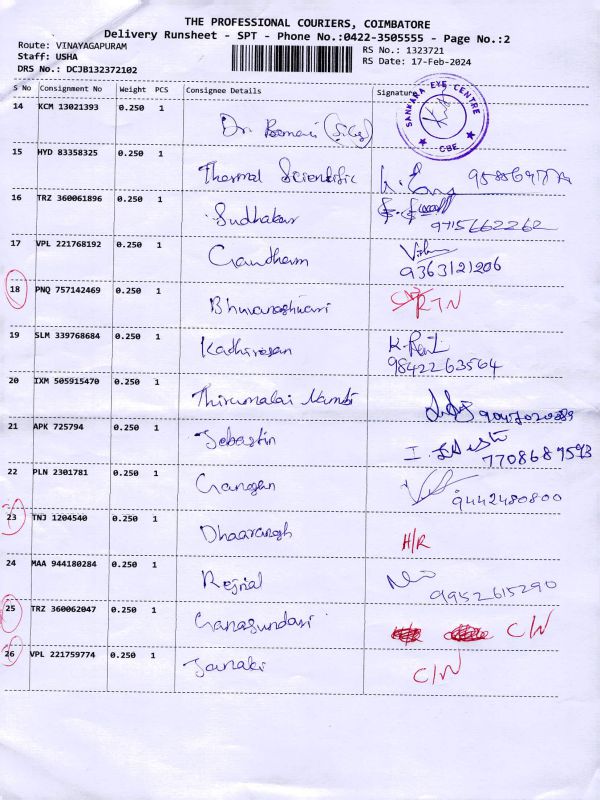 THE PROFESSIONAL COURIERS, COIMBATORE
Delivery Runsheet - SPT - Phone No.:0422-3505555 - Page No.:2
Route: VINAYAGAPURAM RS No.: 1323721
Staff: USHA RS Date: 17-Feb-2024
DRS No.: DCJB132372102
S No Consignment No Weight PCS Consignee Details Signature
SANKARA EYE CENTRE CBE
14 KCM 13021393 0.250 1 Dr.
15 HYD 83358325 0.250 1 Thermal Scientific
16 TRZ 360061896 0.250 1 Sudhakar 9715662262
17 VPL 221768192 0.250 1 Gandham
9363121206
18 PNQ 757142469 0.250 1 Bhuvaneshwari RTN
19 SLM 339768684 0.250 1 Kadhiresan
9842263564
20 IXM 505915470 0.250 1 Thirumalai Nambi
21 APK 725794 0.250 1 Sebastin
7708687593
22 PLN 2301781 0.250 1 Ganesan 9442480800
23 TNJ 1204540 0.250 1 H/R
24 MAA 944180284 0.250 1 9952615290
25 TRZ 360062047 0.250 1 C/N
26 VPL 221759774 0.250 1 Janaki C/N